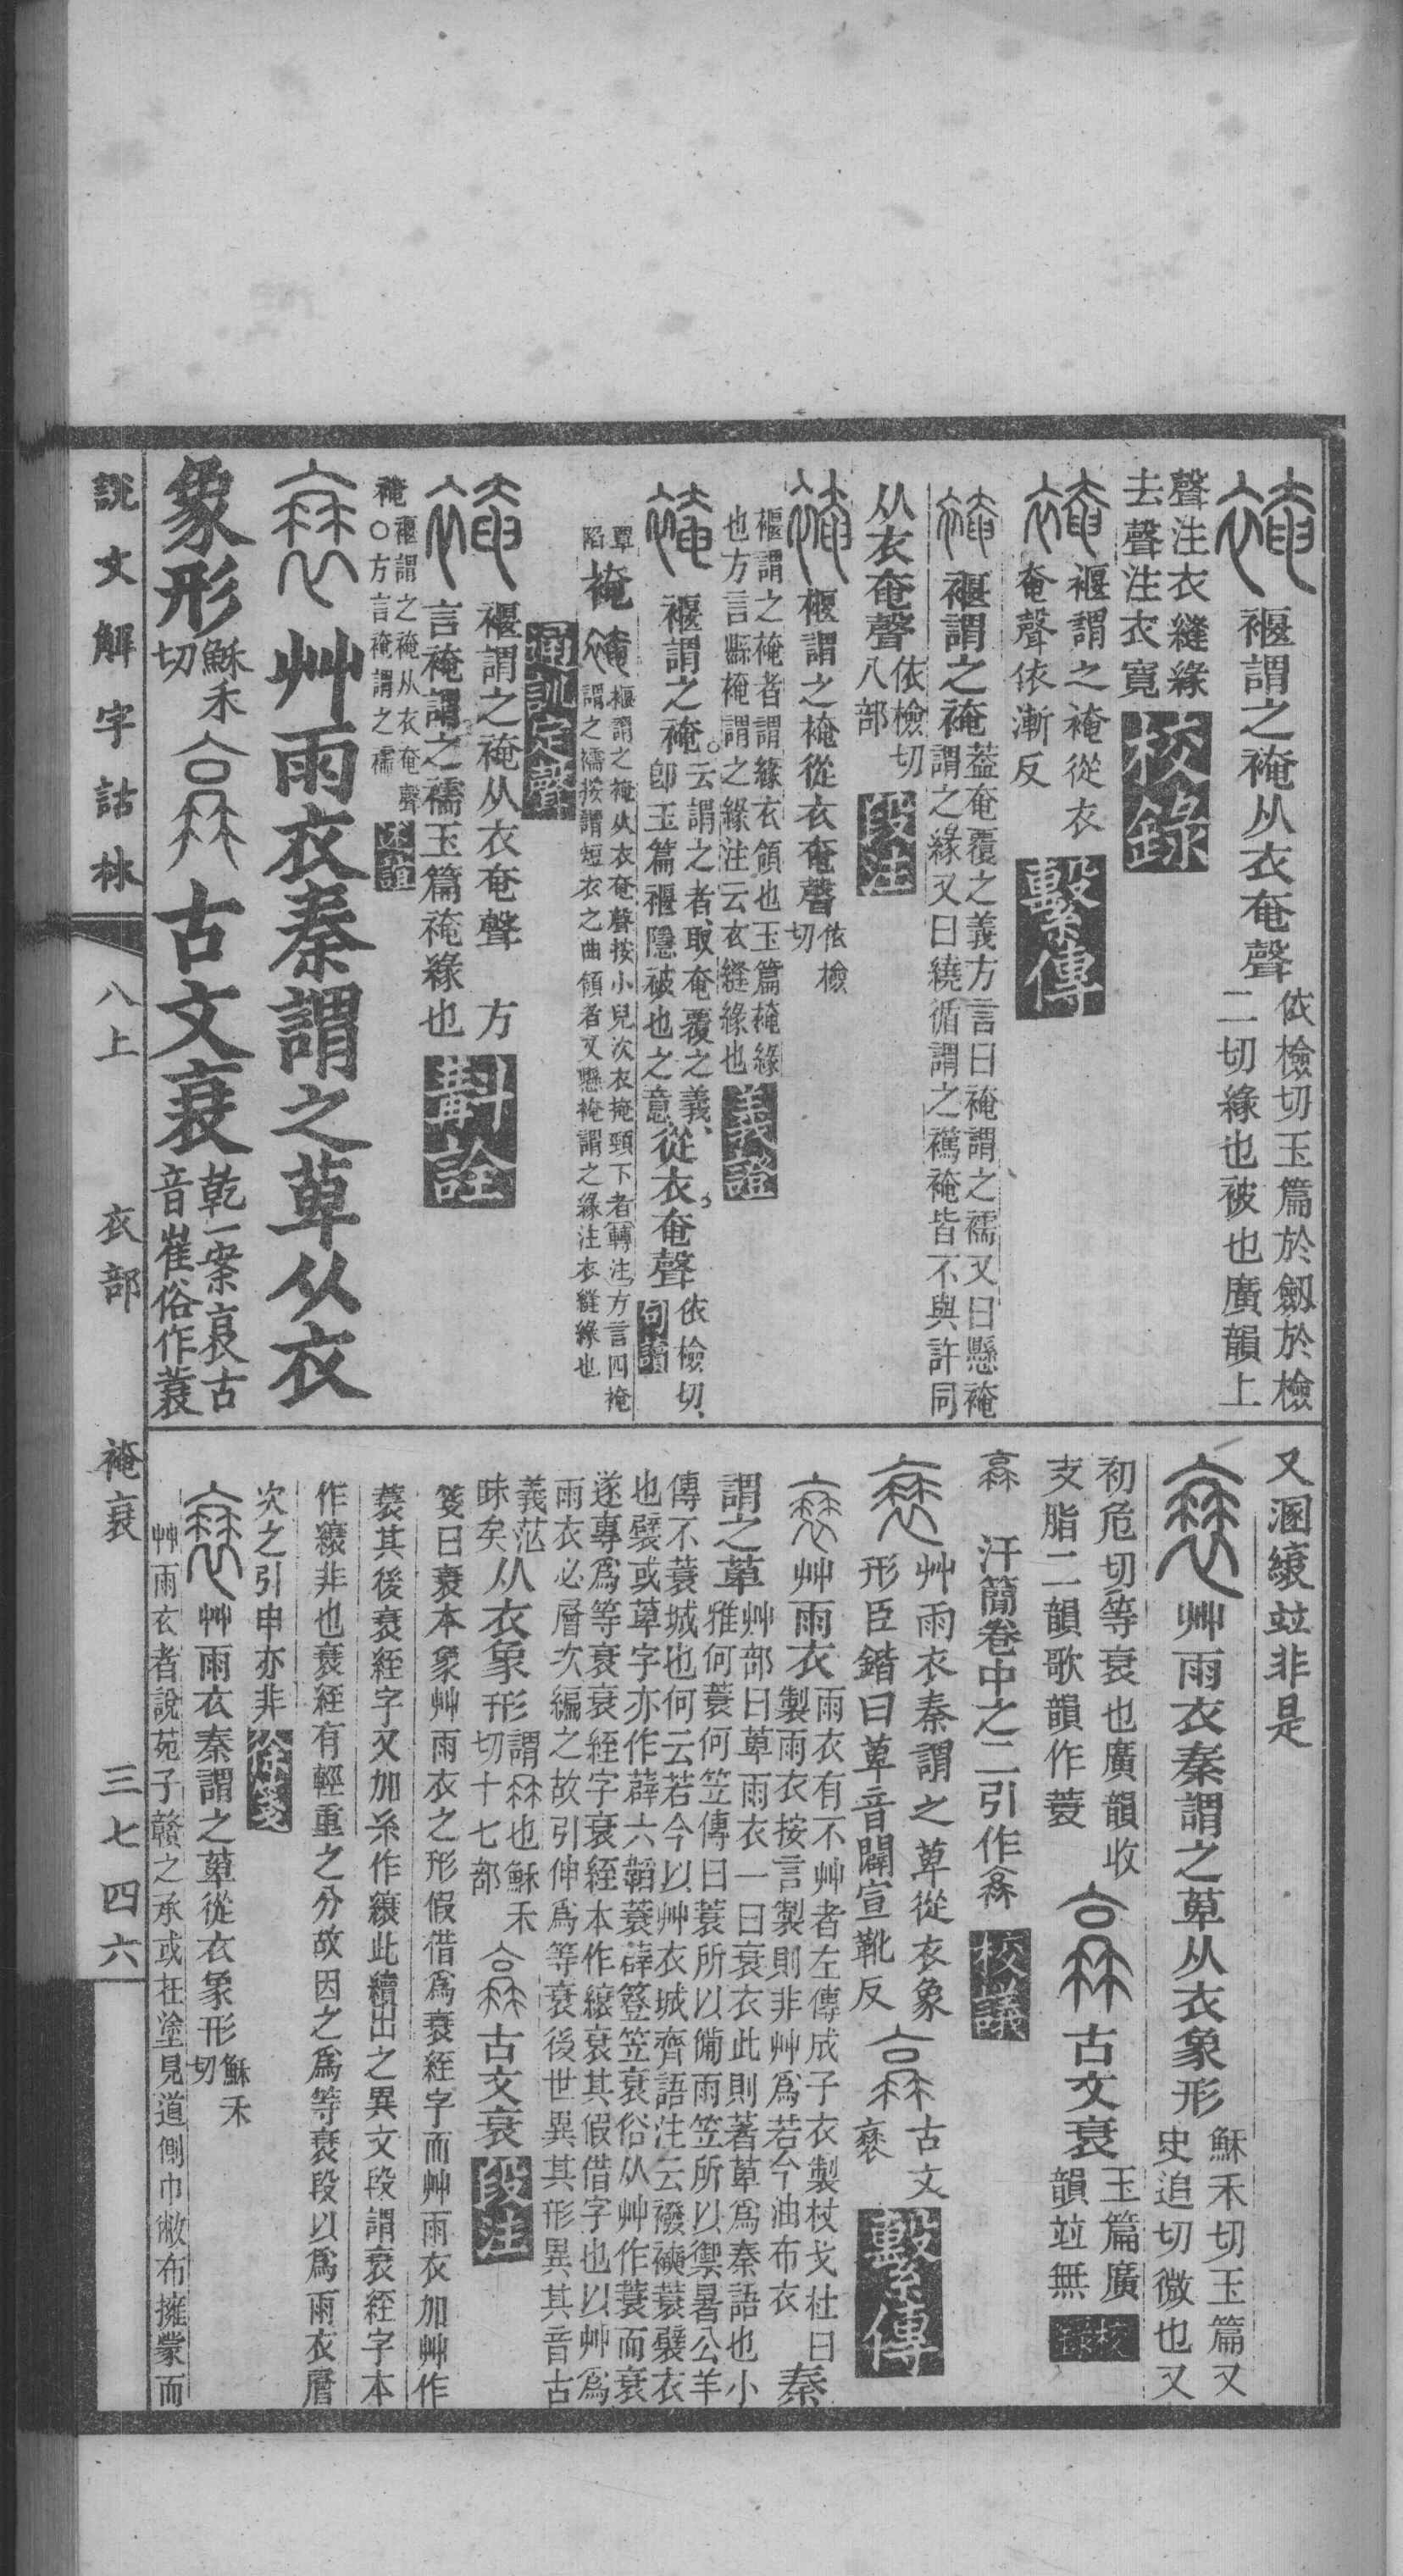 褗謂之裺从衣奄聲
依檢切玉篇於劒於檢
二切緣也被也廣韻上
聲注衣縫緣
去聲注衣寬
校錄
褗謂之裺從衣
奄聲依漸反
繫傳
褗謂之裺
葢奄覆之義方言曰裺謂之襦又曰懸裺
謂之緣又曰繞循謂之襪裺皆不與許同
从衣奄聲
依檢切
八部
段注
褗謂之裺從衣奄聲
依檢
切
褗謂之裺者謂緣衣領也玉篇裺緣
也方言縣裺謂之緣注云衣縫緣也
義證
褗謂之裺
云謂之者取奄覆之義
卽玉篇褗隱被也之意
從衣奄聲
依檢切
句讀
覃
陷
裺
褗謂之裺从衣奄聲按小兒次衣掩頸下者轉注方言四裺
謂之襦按謂短衣之曲領者又懸裺謂之緣注衣縫緣也
通訓定聲
褗謂之裺从衣奄聲 方
言裺謂之襦玉篇裺緣也
斠詮
裺
褗謂之裺从衣奄聲
○方言裺謂之襦
疑證
艸雨衣秦謂之萆从衣
象形
穌禾
切
古文衰
乾一案衰古
音崔俗作蓑
說文解字詁林
八上
衣部
裺衰
三七四六
又溷縗竝非是
艸雨衣秦謂之萆从衣象形
穌禾切玉篇又
史追切微也又
初危切等衰也廣韻收
支脂二韻歌韻作蓑
古文衰
玉篇廣
韻竝無
校錄
汗簡卷中之二引作
校議
艸雨衣秦謂之萆從衣象
形臣鍇曰萆音闢宣靴反
古文
褎
繫傳
艸雨衣
雨衣有不艸者左傳成子衣製杖戈杜曰
製雨衣按言製則非艸爲若今油布衣
秦
謂之萆
艸部曰萆雨衣一曰衰衣此則著萆爲秦語也小
雅何蓑何笠傳曰蓑所以備雨笠所以禦暑公羊
傳不蓑城也何云若今以艸衣城齊語注云襏襫蓑襞衣
也襞或萆字亦作薜六韜蓑薜簦笠衰俗从艸作蓑而衰
遂專爲等衰衰絰字衰絰本作縗衰其假借字也以艸爲
雨衣必層次編之故引伸爲等衰後世異其形異其音古
義茫
昧矣
从衣象形
謂𠈌也穌禾
切十七部
古文衰
段注
箋曰衰本象艸雨衣之形假借爲衰絰字而艸雨衣加艸作
蓑其後衰絰字又加糸作縗此續出之異文段謂衰絰字本
作縗非也衰絰有輕重之分故因之爲等衰段以爲雨衣層
次之引申亦非
徐箋
艸雨衣秦謂之萆從衣象形
穌禾
切
艸雨衣者說苑子贛之承或在塗見道側巾敝布擁蒙而